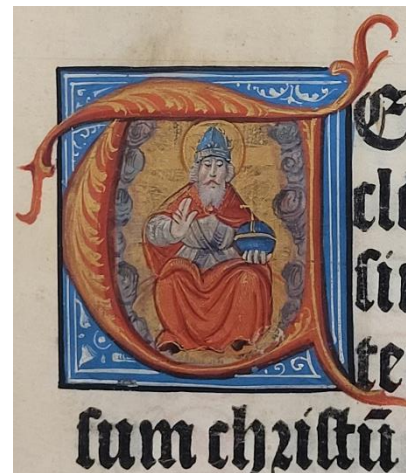 TE
cle
ſi
te
ſum chriſtū